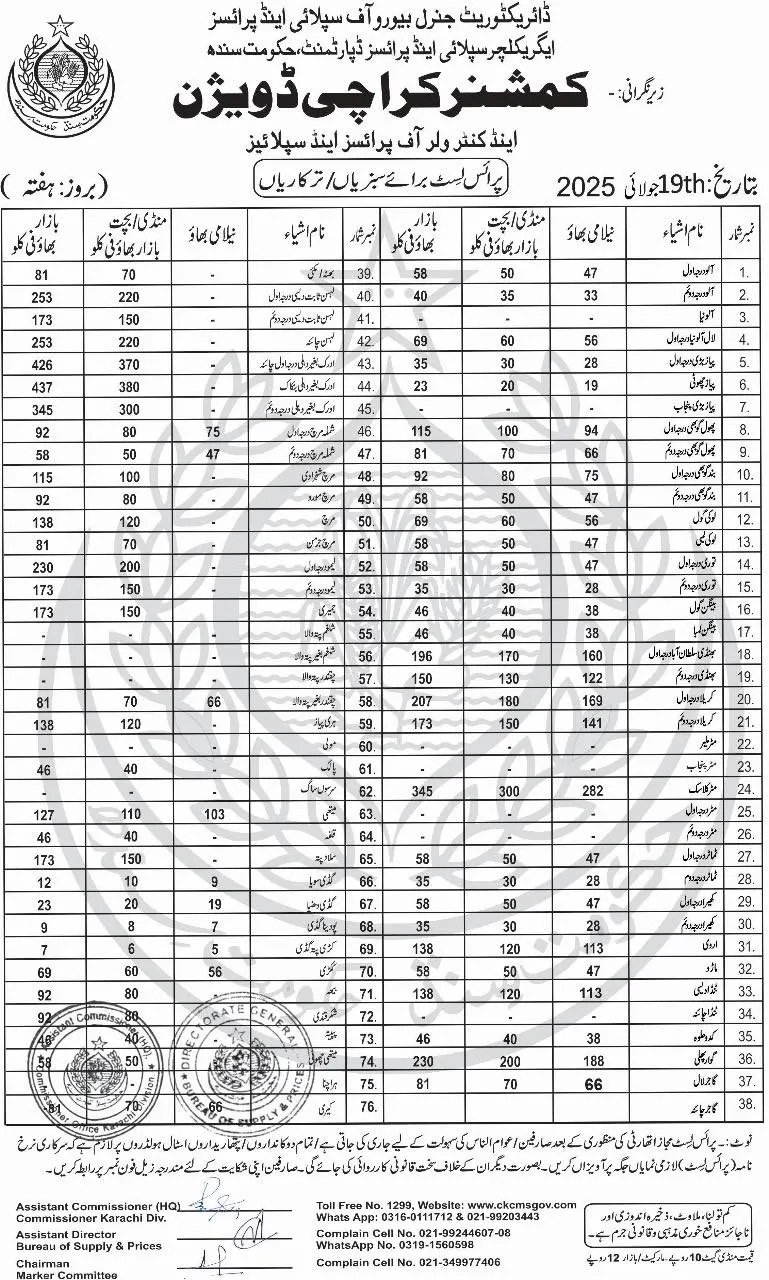 ڈائریکٹوریٹ جنرل بیورو آف سپلائی اینڈ پرائسز
ایگریکلچر سپلائی اینڈ پرائسز ڈپارٹمنٹ، حکومت سندھ
زیر نگرانی: -
کمشنر کراچی ڈویژن
اینڈ کنٹرولر آف پرائسز اینڈ سپلائیز
تاریخ: 19th جولائی 2025
پرائس لسٹ برائے سبزیاں/ترکاریاں
(بروز: ہفتہ)
نمبر شمار نام اشیاء نیلامی بھاؤ منڈی/بچت بازار بھاؤ فی کلو بازار بھاؤ فی کلو
1. آلو درجہ اول 47 50 58
2. آلو درجہ دوئم 33 35 40
3. آلو نیا - - -
4. لال آلو نیا درجہ اول 56 60 69
5. پیاز بڑی درجہ اول 28 30 35
6. پیاز چھوٹی 19 20 23
7. پیاز بڑی پنجاب - - -
8. پھول گوبھی درجہ اول 94 100 115
9. پھول گوبھی درجہ دوئم 66 70 81
10. بند گوبھی درجہ اول 75 80 92
11. بند گوبھی درجہ دوئم 47 50 58
12. لوکی گول 56 60 69
13. لوکی لمبی 47 50 58
14. توری درجہ اول 47 50 58
15. توری درجہ دوئم 28 30 35
16. بینگن گول 38 40 46
17. بینگن لمبا 38 40 46
18. بھنڈی سلطان آباد درجہ اول 160 170 196
19. بھنڈی درجہ دوئم 122 130 150
20. کریلا درجہ اول 169 180 207
21. کریلا درجہ دوئم 141 150 173
22. مٹر ملیر - - -
23. مٹر پنجاب - - -
24. مٹر کلاسک 282 300 345
25. مٹر درجہ اول - - -
26. مٹر درجہ دوئم - - -
27. ٹماٹر درجہ اول 47 50 58
28. ٹماٹر درجہ دوم 28 30 35
29. کھیرا درجہ اول 47 50 58
30. کھیرا درجہ دوئم 28 30 35
31. اروی 113 120 138
32. ماڑو 47 50 58
33. ٹنڈا دیسی 113 120 138
34. ٹنڈا چائنہ - - -
35. کدو حلوہ 38 40 46
36. گوار پھلی 188 200 230
37. گاجر لال 66 70 81
38. گاجر چائنہ
نمبر شمار نام اشیاء نیلامی بھاؤ منڈی/بچت بازار بھاؤ فی کلو بازار بھاؤ فی کلو
39. - 70 81
40. لہسن ثابت دیسی درجہ اول - 220 253
41. لہسن ثابت دیسی درجہ دوئم - 150 173
42. لہسن چائنہ - 220 253
43. ادرک بغیر دھلی درجہ اول چائنہ - 370 426
44. ادرک بغیر دھلی بنکاک - 380 437
45. ادرک بغیر دھلی درجہ دوئم - 300 345
46. شملہ مرچ درجہ اول 75 80 92
47. شملہ مرچ درجہ دوئم 47 50 58
48. مرچ شہزادی - 100 115
49. مرچ - 80 92
50. مرچ - 120 138
51. مرچ - 70 81
52. لیمو درجہ اول - 200 230
53. لیمو درجہ دوئم - 150 173
54. جمیری - 150 173
55. شلغم پتہ والا - - -
56. شلغم بغیر پتہ والا - - -
57. چقندر پتہ والا - - -
58. چقندر بغیر پتہ والا 66 70 81
59. ہری پیاز - 120 138
60. مولی - - -
61. پالک - 40 46
62. سرسوں ساگ - - -
63. میتھی 103 110 127
64. قلفہ - 40 46
65. سلاد پتہ - 150 173
66. گڈی سویا 9 10 12
67. گڈی دھنیا 19 20 23
68. پودینا گڈی 7 8 9
69. کڑی پتہ گڈی 5 6 7
70. ککڑی 56 60 69
71. - 80 92
72. شکر قندی 80 92
73. 40 46
74. میتھی چھوٹی 50 58
75. ہرا چنا
76. کیری 66 70 81
حکومت سندھ
Assistant Commissioner (HQ),
Commissioner Office Karachi Division
DIRECTORATE GENERAL
BUREAU OF SUPPLY & PRICES
نوٹ: - پرائس لسٹ مجاز اتھارٹی کی منظوری کے بعد صارفین/عوام الناس کی سہولت کے لیے جاری کی جاتی ہے/تمام دوکانداروں/پتھاریداروں اسٹال ہولڈروں پر لازم ہے کہ سرکاری نرخ
نامہ (پرائس لسٹ) لازمی نمایاں جگہ پر آویزاں کریں۔ بصورت دیگر ان کے خلاف سخت قانونی کارروائی کی جائے گی۔ صارفین اپنی شکایت کے لئے مندرجہ زیل فون نمبر پر رابطہ کریں۔
Assistant Commissioner (HQ)
Commissioner Karachi Div.
Assistant Director
Bureau of Supply & Prices
Chairman
Marker Committee
Toll Free No. 1299, Website: www.ckcmsgov.com
Whats App: 0316-0111712 & 021-99203443
Complain Cell No. 021-99244607-08
WhatsApp No. 0319-1560598
Complain Cell No. 021-349977406
کم تولنا، ملاوٹ، ذخیرہ اندوزی اور
ناجائز منافع خوری مذہبی و قانونی جرم ہے۔
قیمت منڈی گیٹ 10 روپے - مارکیٹ/بازار 12 روپے